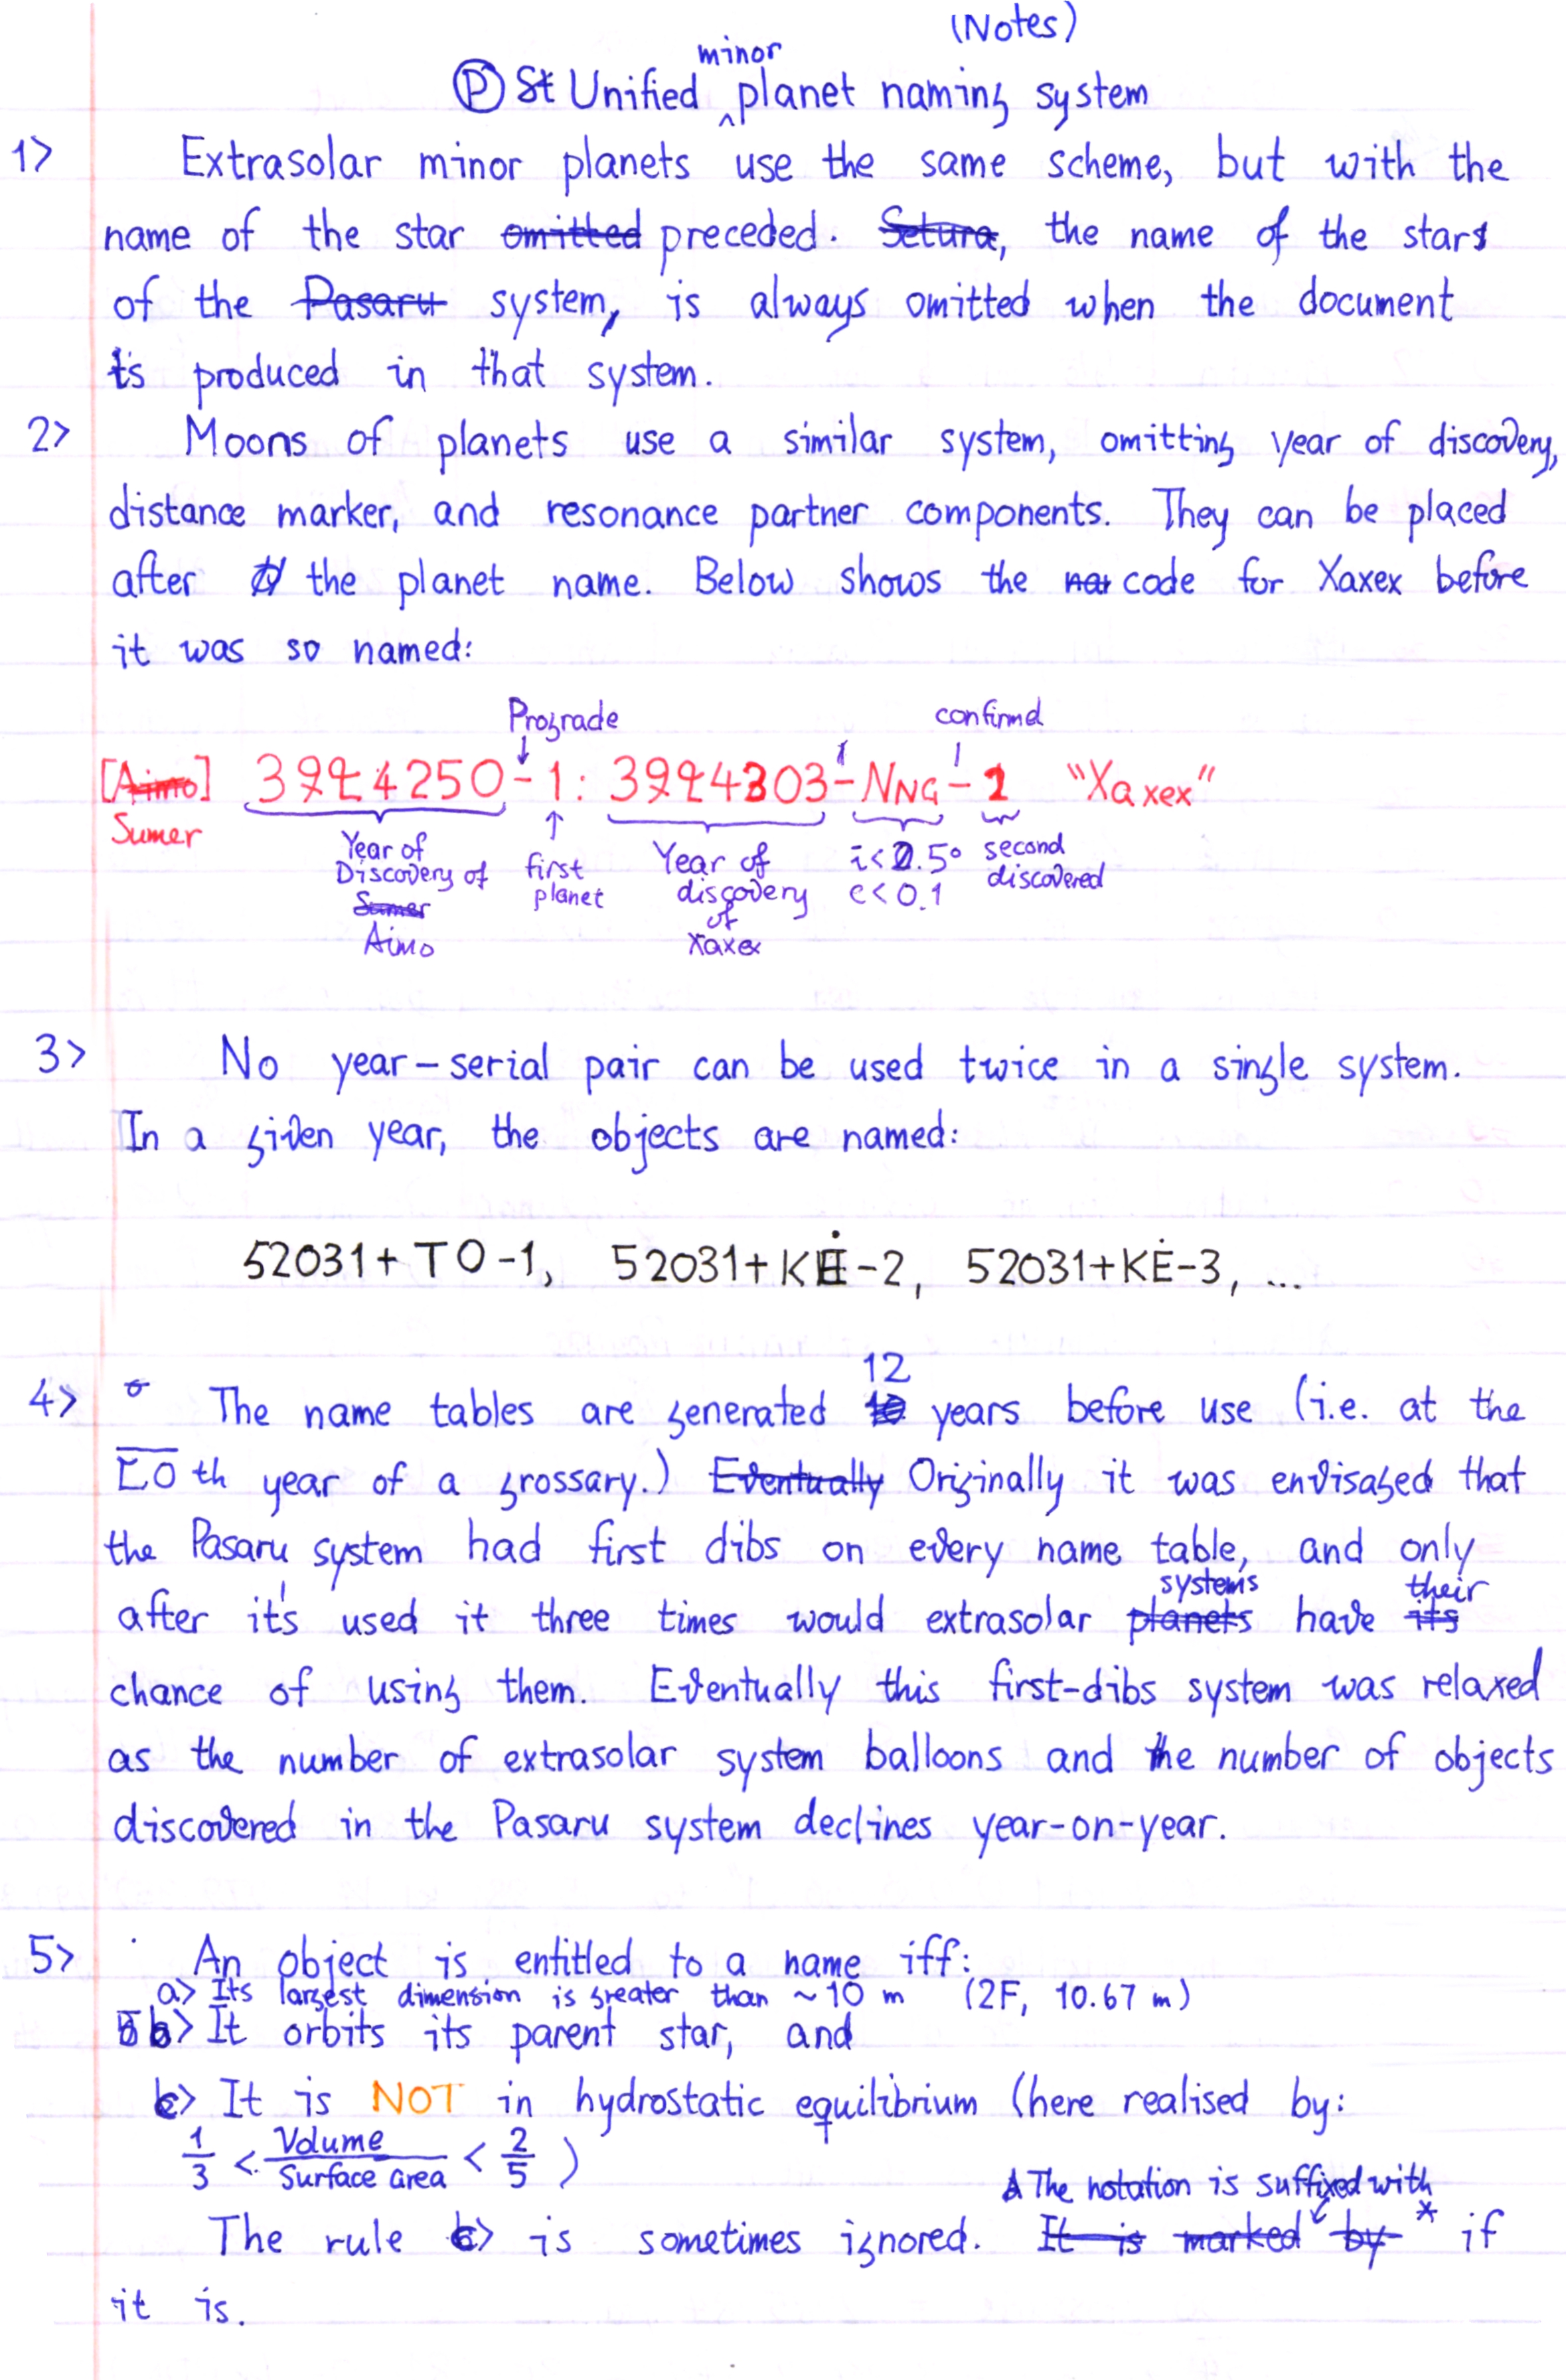 (Notes)
minor
Ⓟ St Unified ‸ planet naming system
1> Extrasolar minor planets use the same scheme, but with the
name of the star omitted preceded. Setura, the name of the stars
of the Pasaru system, is always omitted when the document
is produced in that system.
2> Moons of planets use a similar system, omitting year of discovery,
distance marker, and resonance partner components. They can be placed
after the planet name. Below shows the na code for Xaxex before
it was so named:
Prograde confirmd
[Aimo] 3924250-1: 3924303-NNG-2 "Xaxex"
Sumer
Year of Discovery of Sumer Aimo
first planet
Year of discovery of Xaxex
i<2.5° e<0.1
second discovered
3> No year-serial pair can be used twice in a single system.
In a given year, the objects are named:
52031+TO-1, 52031+KĖ-2, 52031+KĖ-3, ...
12
4> The name tables are generated 10 years before use (i.e. at the
th year of a grossary.) Eventually Originally it was envisaged that
the Pasaru system had first dibs on every name table, and only
systems their
after it's used it three times would extrasolar planets have its
chance of using them. Eventually this first-dibs system was relaxed
as the number of extrasolar system balloons and the number of objects
discovered in the Pasaru system declines year-on-year.
5> An object is entitled to a name iff:
a> Its largest dimension is greater than ~10 m (2F, 10.67 m)
b> It orbits its parent star, and
c> It is NOT in hydrostatic equilibrium (here realised by:
1/3 < Volume/Surface area < 2/5 )
The notation is suffixed with
The rule c> is sometimes ignored. It is marked by * if
it is.